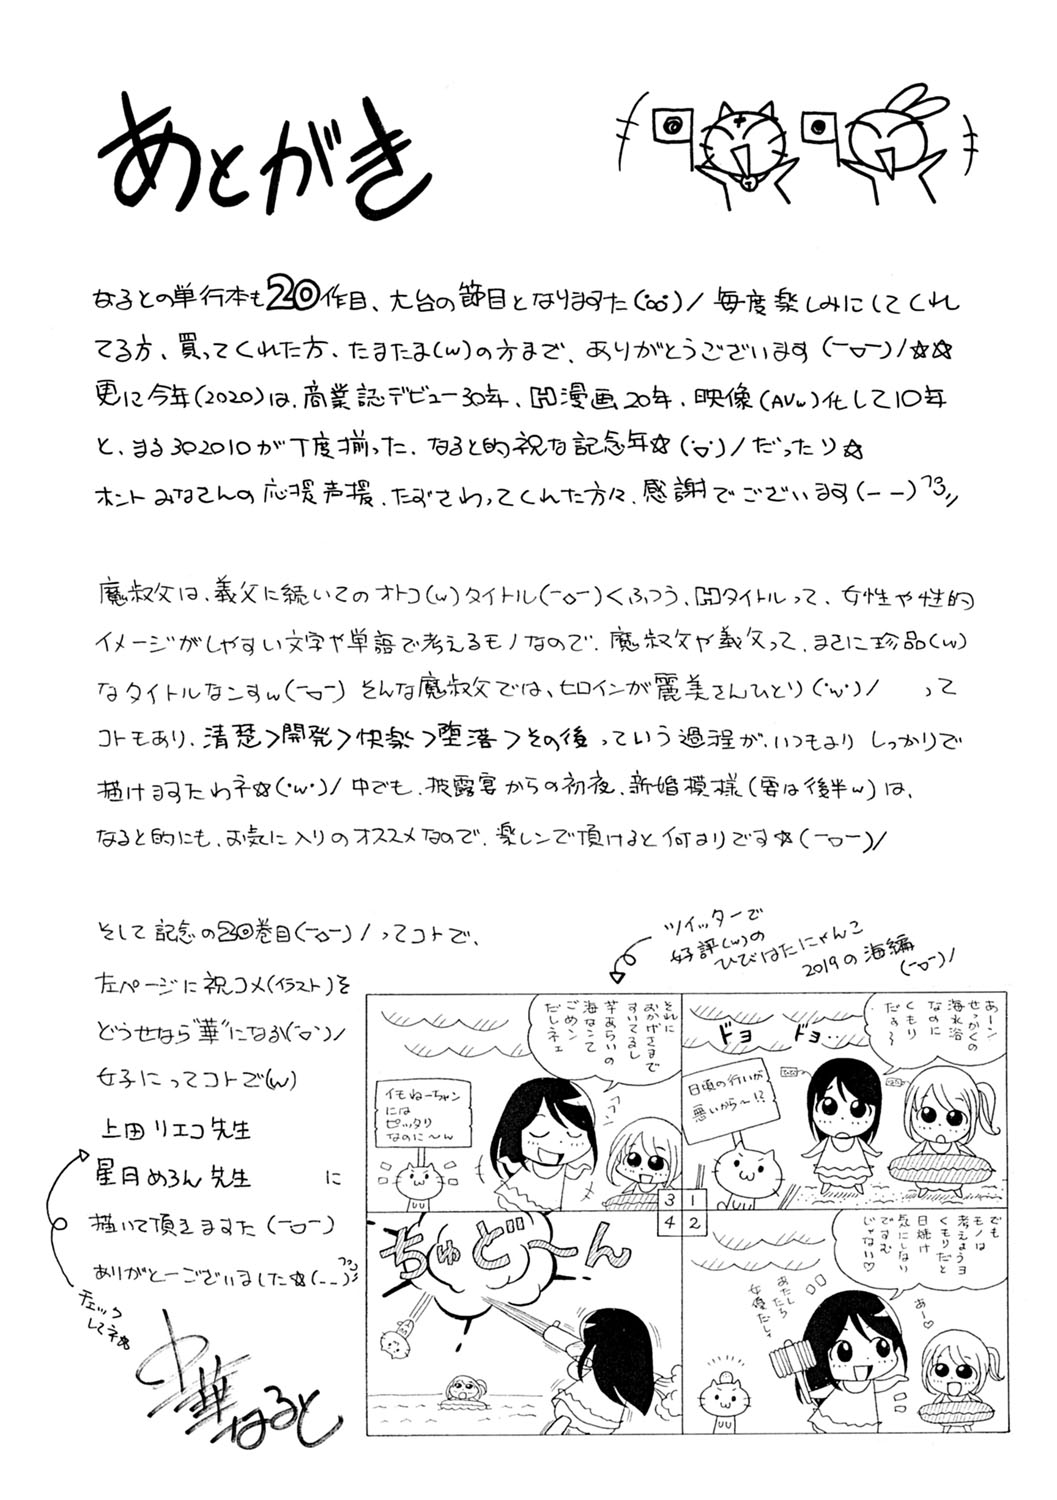 あとがき
なるとの単行本も20作目、大台の節目となりますた(°o°)/ 毎度楽しみにしてくれ
てる方、買ってくれた方、たまたま(w)の方まで、ありがとうございます(ー▽ー)/☆☆
更に今年(2020)は、商業誌デビュー30年、H漫画20年、映像(AVw)化して10年
と、まる302010が丁度揃った、なると的祝な記念年☆(°▽°)/だったり☆
ホントみなさんの応援声援、たずさわってくれた方々、感謝でございます(ーー)フヨ〃
魔叔父は、義父に続いてのオトコ(w)タイトル(ー▽ー)くふつう、Hタイトルって、女性や性的
イメージがしやすい文字や単語で考えるモノなので、魔叔父や義父って、まさに珍品(w)
なタイトルなンすw(ー▽ー) そんな魔叔父では、ヒロインが麗美さんひとり(・w・)/ って
コトもあり、清楚>開発>快楽>堕落>その後 っていう過程が、いつもより しっかりで
描けますたわネ☆(・w・)/ 中でも、披露宴からの初夜、新婚模様(要は後半w)は、
なると的にも、お気に入りのオススメなので、楽しンで頂けると何よりです☆(ー▽ー)/
そして記念の20巻目(ー▽ー)/ ってコトで、
左ページに祝コメ(イラスト)を
どうせなら"華"になる(°▽°)/
女子にってコトで(w)
上田リエコ先生
星月めろん先生 に
描いて頂きますた(ー▽ー)
ありがとーございました☆(--)フヨ〃
チェック
してネ☆
中華なると
ツイッターで
好評(w)の
ひびはたにゃんこ
2019の海編
(ー▽ー)/
あーン
せっかくの
海水浴
なのに
くもり
だす〜
ドヨ ドヨ・・
日頃の行いが
悪いから〜!?
1
でも
モノは
考えようヨ
くもりだと
日焼け
気にしない
ですむ
じゃない♡
あー♡
あたしたち
女優だしィ
2
それに
おかげさまで
すいてるし
芋あらいの
海なンて
ごめン
だしネェ
フフン
イモねーちゃン
には
ピッタリ
なのに〜ん
3
ちゅど〜ん
4